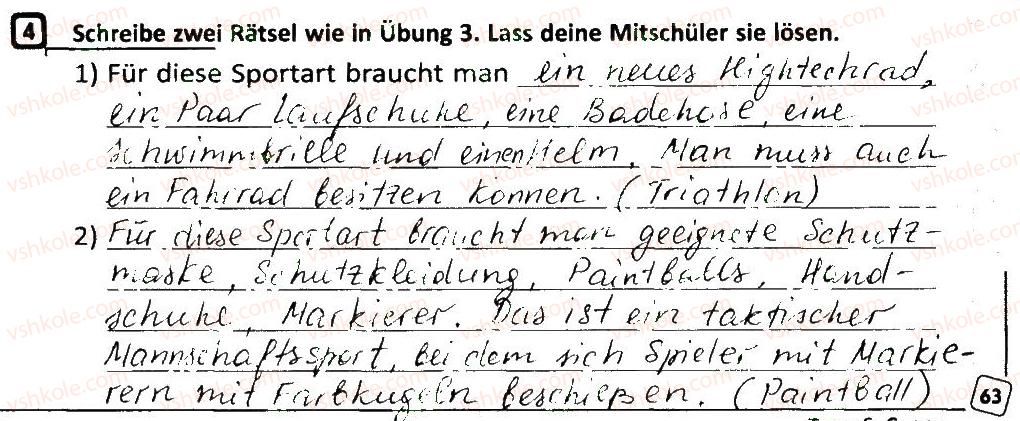 4 Schreibe zwei Rätsel wie in Übung 3. Lass deine Mitschüler sie lösen.
1) Für diese Sportart braucht man ein neues Hightechrad,
ein Paar Laufschuhe, eine Badehose, eine
Schwimmbrille und einen Helm. Man muss auch
ein Fahrrad besitzen können. (Triathlon)
2) Für diese Sportart braucht man geeignete Schutz-
maske, Schutzkleidung, Paintballs, Hand-
schuhe, Markierer. Das ist ein taktischer
Mannschaftssport, bei dem sich Spieler mit Markie-
rern mit Farbkugeln beschießen. (Paintball)
63